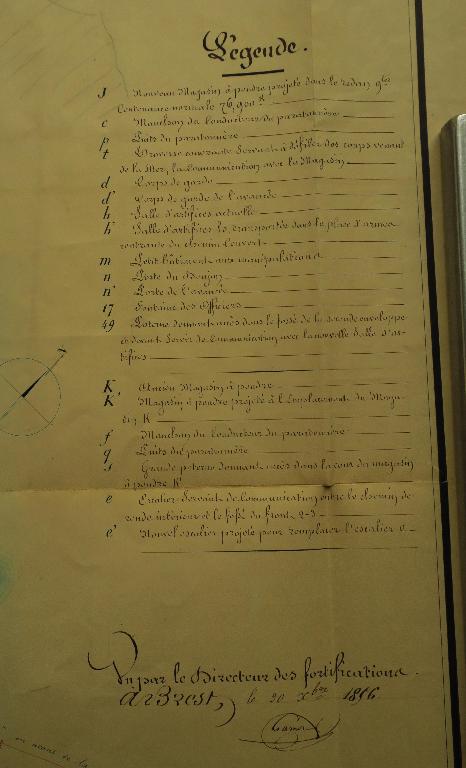 Légende.
J Nouveau Magasin à poudre projeté dans le redan gche
Contenance normale 76,900 K
c Manchon du Conducteur du paratonnerre
p Puits du paratonnerre
t Traverse courante Servant à défiler des coups venant
de la Mer, la Communication avec le Magasin
d Corps de garde
d' Corps de garde de l'avancée
h Salle d'artifices actuelle
h' Salle d'artifices transportée dans la place d'armes
rentrante du chemin Couvert
m Petit bâtiment aux manipulations
n Porte du Donjon
n' Porte de l'avancée
17 Fontaine des Officiers
49 Poterne donnant accès dans le fossé de la seconde enveloppe
et devant Servir de Communication avec la nouvelle Salle d'ar-
tifices
K Ancien Magasin à poudre
K' Magasin à poudre projeté à l'Emplacement du Maga-
sin K
f Manchon du Conducteur du paratonnerre
q Puits du paratonnerre
s Grande poterne donnant accès dans la cour du magasin
à poudre K'
e Escalier Servant de Communication entre le chemin de
ronde intérieur et le fossé du front 2-3
e' Nouvel escalier projeté pour remplacer l'escalier e
Vu par le Directeur des fortifications
à Brest, le 20 Xbre
en avant de la